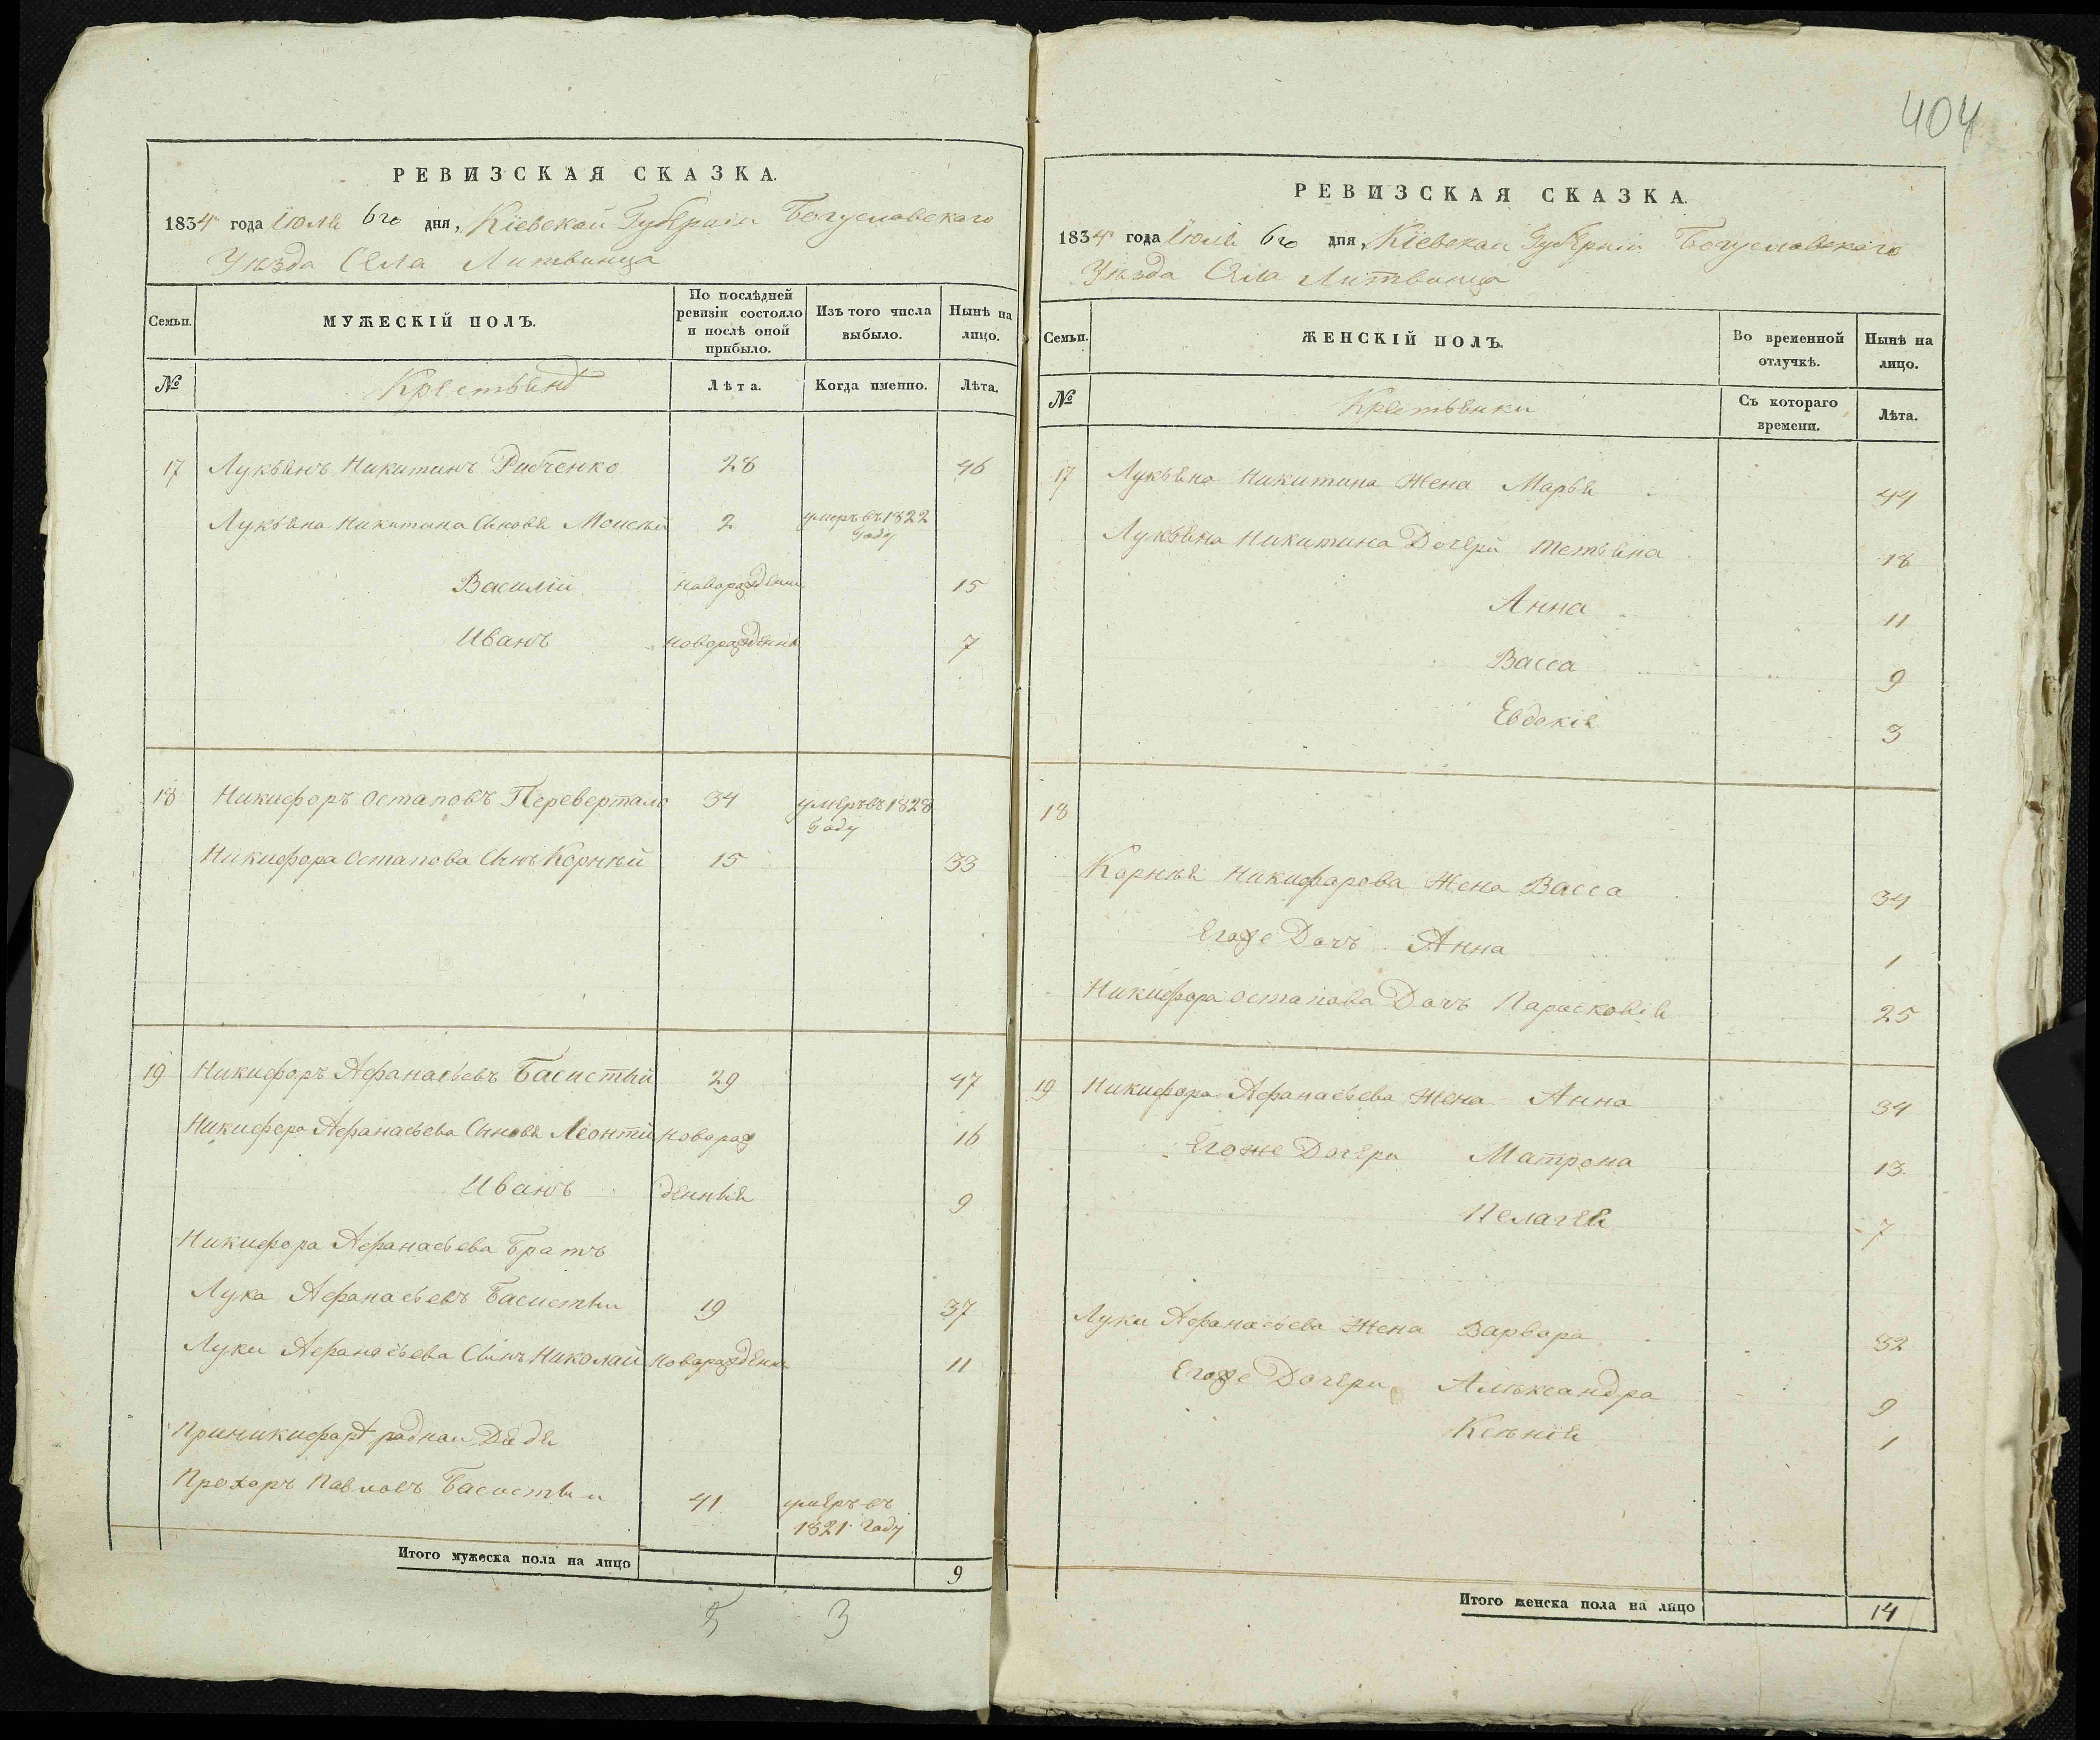 404
РЕВИЗСКАЯ СКАЗКА.
1834 года Іюля 6го дня, Кіевской Губерніи Богуславского
Уѣзда Села Литвинца
Семьи. МУЖЕСКІЙ ПОЛЪ. По послѣдней ревизіи состояло и послѣ оной прибыло. Изъ того числа выбыло. Нынѣ на лицо.
№ Крестьянъ Лѣта. Когда именно. Лѣта.
17 Лукьянъ Никитинъ Рибченко 28 46
Лукьяна Никитина Сыновя Моисѣй 2 умеръ въ 1822
Году
Василій новорожденн 15
Иванъ новорожденн 7
18 Никифоръ Остаповъ Перевертало 34 умеръ въ 1828
Году
Никифора Остапова Сынъ Корнѣй 15 33
19 Никифоръ Афанасьевъ Басистый 29 47
Никифора Афанасьева Сыновя Леонтій новорож 16
Иванъ денныя 9
Никифора Афанасьева Братъ
Лука Афанасьевъ Басистый 19 37
Луки Афанасьева Сынъ Николай новорожденн 11
При Никифорѣ родной Дядя
Прохоръ Павловъ Басистый 41 умеръ въ
1821 Году
Итого мужеска пола на лицо 9
5 3
РЕВИЗСКАЯ СКАЗКА.
1834 года Іюля 6го дня, Кіевской Губерніи Богуславского
Уѣзда Села Литвинца
Семьи. ЖЕНСКІЙ ПОЛЪ. Во временной отлучкѣ. Нынѣ на лицо.
№ Крестьянки Съ котораго времени. Лѣта.
17 Лукьяна Никитина Жена Марья 44
Лукьяна Никитина Дочери Тетьяна 18
Анна 11
Васса 9
Евдокія 3
18
Корнѣя Никифорова Жена Васса 34
Егоже Дочъ Анна 1
Никифора Остапова Дочъ Парасковія 25
19 Никифора Афанасьева Жена Анна 34
Егоже Дочери Матрона 13
Пелагея 7
Луки Афанасьева Жена Варвара 32
Егоже Дочери Алѣксандра 9
Ксѣнія 1
Итого женска пола на лицо 14